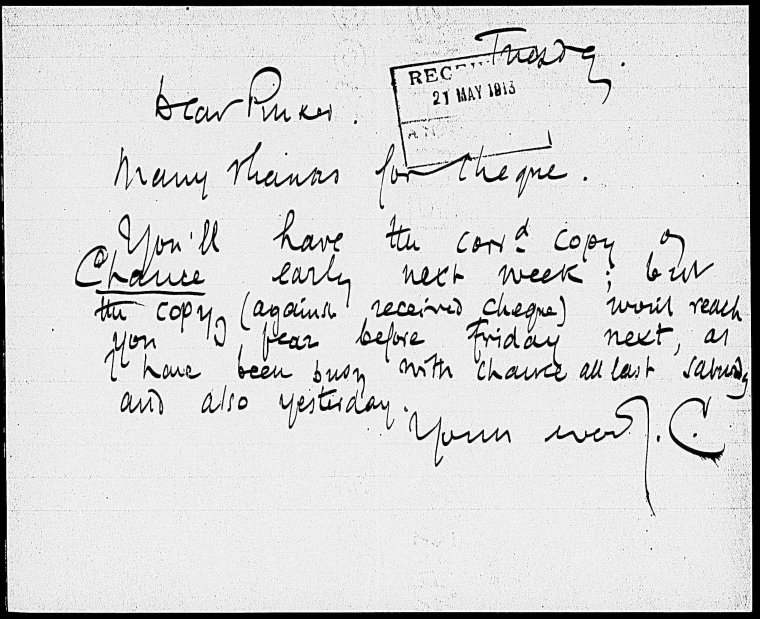 Tuesday.
REC
21 MAY 1913
Dear Pinker.
Many thanks for cheque.
You'll have the corrd copy of
Chance early next week; but
the copy, (against received cheque) won't reach
you I fear before Friday next, as
I have been busy with Chance all last Saturday
and also yesterday.
Yours ever J. C.